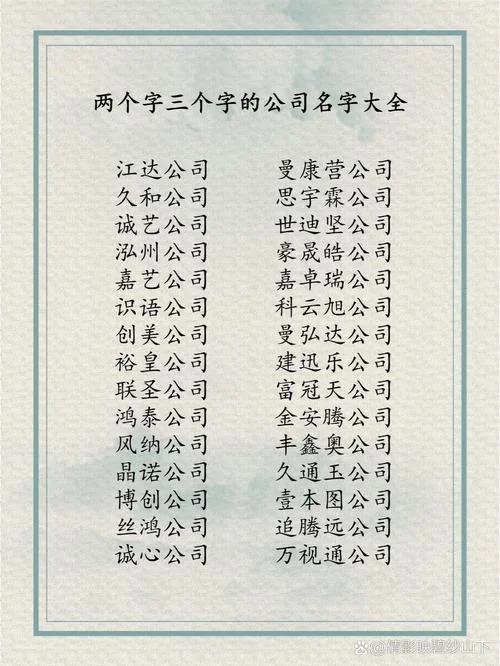 两个字三个字的公司名字大全
江达公司 曼康营公司
久和公司 思宇霖公司
诚艺公司 世迪坚公司
泓州公司 豪晟皓公司
嘉艺公司 嘉卓瑞公司
识语公司 科云旭公司
创美公司 曼弘达公司
裕皇公司 建迅乐公司
联圣公司 富冠天公司
鸿泰公司 金安腾公司
风纳公司 丰鑫奥公司
晶诺公司 久通玉公司
博创公司 壹本图公司
丝鸿公司 追腾远公司
诚心公司 万视通公司
倩影映碧纱山下